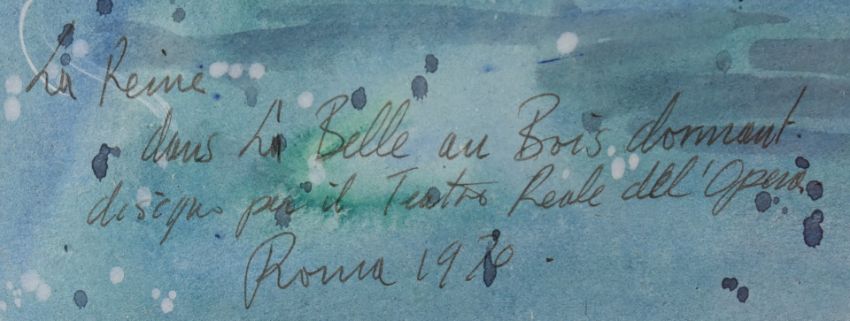 La Reine
dans La Belle au Bois dormant.
disegno per il Teatro Reale dell'Opera
Roma 1970.